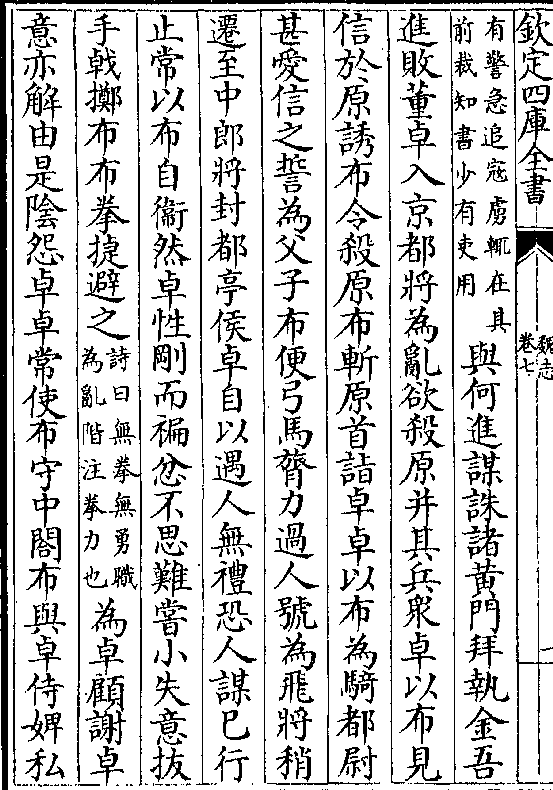 欽定四庫全書
魏志
卷七
有警急追寇虜輒在其
前裁知書少有吏用
與何進謀誅諸黄門拜執金吾
進敗董卓入京都將為亂欲殺原并其兵衆卓以布見
信於原誘布令殺原布斬原首詣卓卓以布為騎都尉
甚愛信之誓為父子布便弓馬膂力過人號為飛將稍
遷至中郎將封都亭侯卓自以遇人無禮恐人謀已行
止常以布自衞然卓性剛而褊忿不思難嘗小失意抜
手㦸擲布布拳捷避之
詩曰無拳無勇職
為亂階注拳力也
為卓顧謝卓
意亦解由是陰怨卓卓常使布守中閤布與卓侍婢私